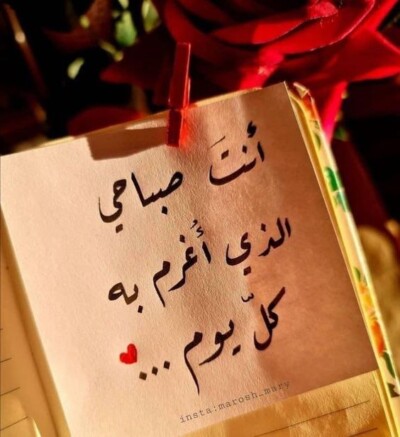 أنتَ صباحي
الذي أُغرم به
كلّ يوم ...
insta:marosh_mary